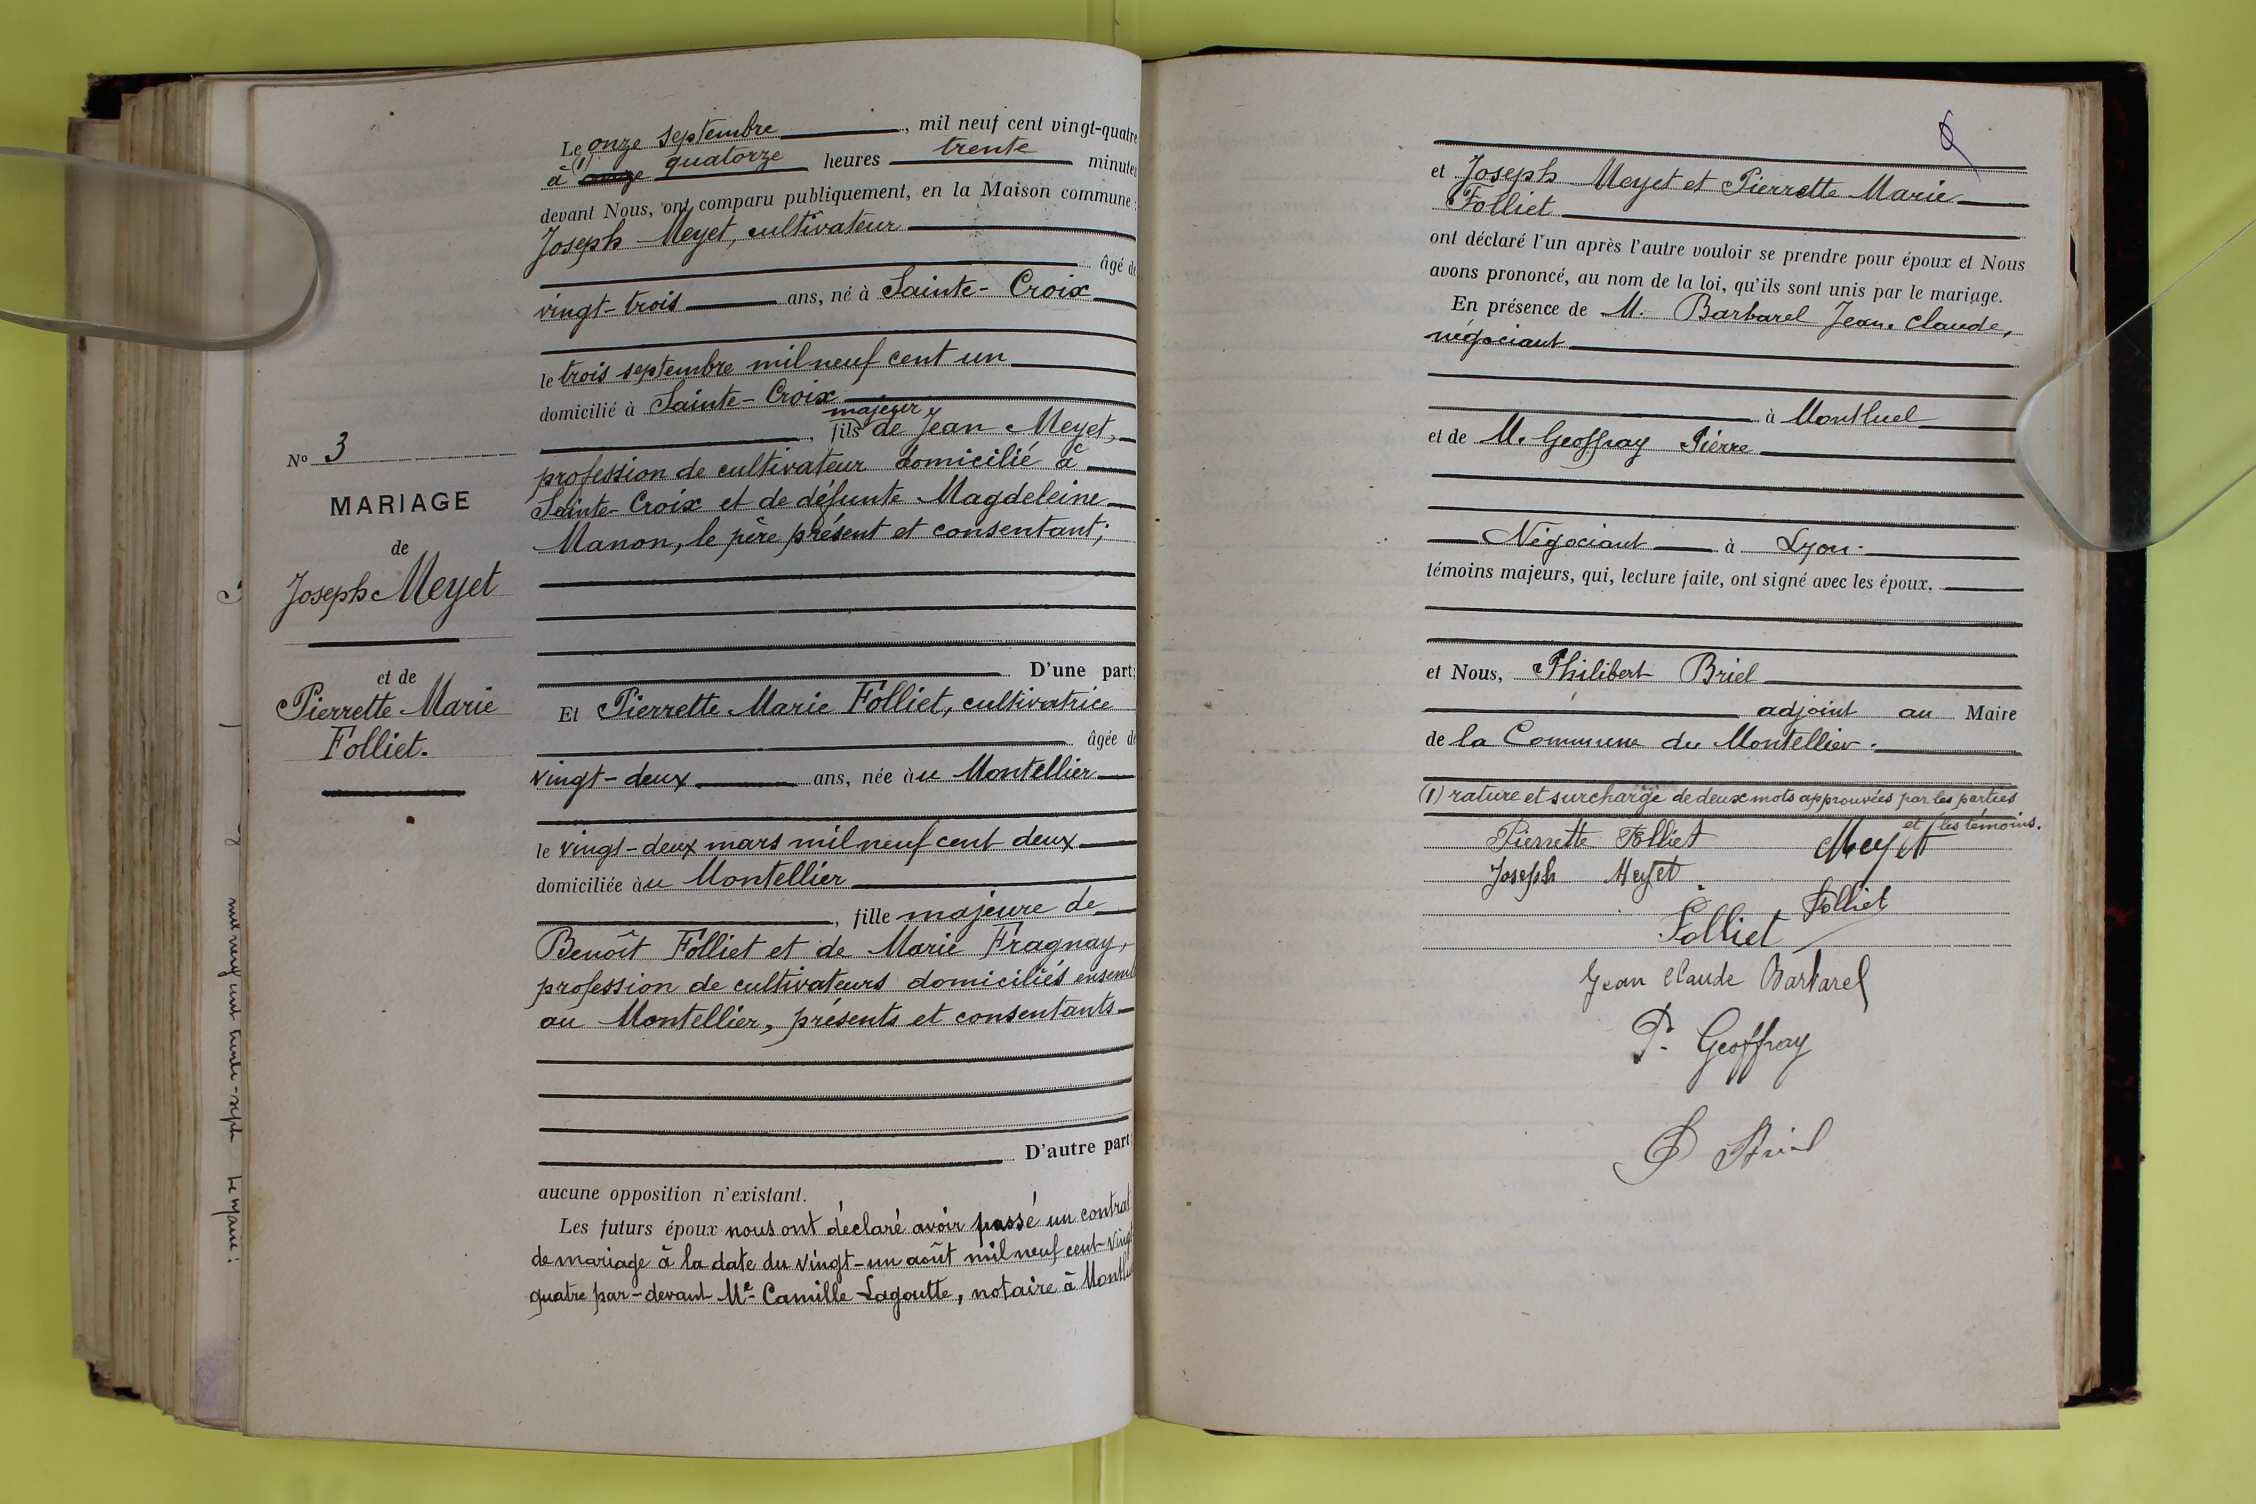 Le onze septembre, mil neuf cent vingt-quatre
à (1) quatorze heures trente minutes
devant Nous, ont comparu publiquement, en la Maison commune :
Joseph Meyet, cultivateur
âgé de
vingt-trois ans, né à Sainte-Croix
le trois septembre mil neuf cent un
domicilié à Sainte-Croix
majeur
, fils de Jean Meyet,
profession de cultivateur domicilié à
Sainte-Croix et de défunte Magdeleine
Manon, le père présent et consentant;
D'une part;
Et Pierrette Marie Folliet, cultivatrice
âgée de
vingt-deux ans, née àu Montellier
le vingt-deux mars mil neuf cent deux
domiciliée àu Montellier
, fille majeure de
Benoît Folliet et de Marie Fragnay,
profession de cultivateurs domiciliés ensem
au Montellier, présents et consentants
D'autre part;
aucune opposition n'existant.
Les futurs époux nous ont déclaré avoir passé un contrat
de mariage à la date du vingt-un août mil neuf cent-vingt
quatre par-devant Me Camille Lagoutte, notaire à Montlu
No 3
MARIAGE
de
Joseph Meyet
et de
Pierrette Marie
Folliet.
mil neuf cent trente-sept Le Maire :
et Joseph Meyet et Pierrette Marie
Folliet
ont déclaré l'un après l'autre vouloir se prendre pour époux et Nous
avons prononcé, au nom de la loi, qu'ils sont unis par le mariage.
En présence de M. Barbarel Jean-Claude,
négociant
à Montluel
et de M. Geoffray Pierre
Négociant à Lyon.
témoins majeurs, qui, lecture faite, ont signé avec les époux.
et Nous, Philibert Briel
adjoint au Maire
de la Commune du Montellier.
(1) rature et surcharge de deux mots approuvées par les parties
et les témoins.
Pierrette Folliet Meyet
Joseph Meyet
Folliet
Folliet
Jean Claude Barbarel
P. Geoffray
P Briel